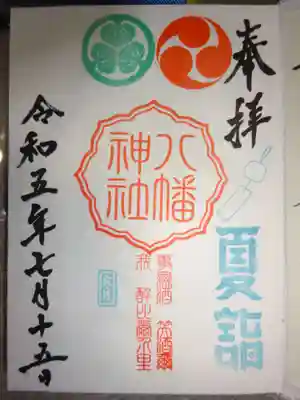 奉拝
夏詣
八幡
神社
令和五年七月十五日